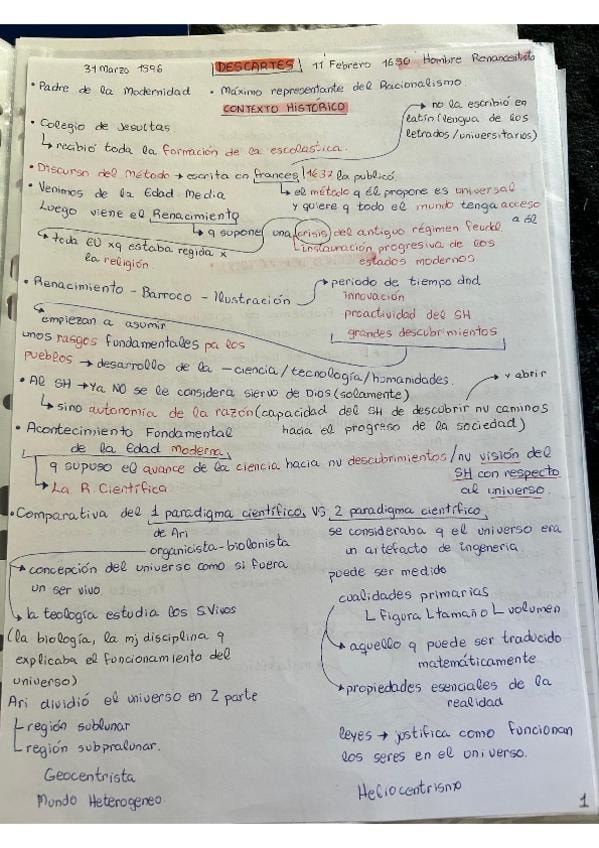 31 Marzo 1596 DESCARTES 11 Febrero 1650 Hombre Renancentista
• Padre de la Modernidad • Máximo representante del Racionalismo.
CONTEXTO HISTÓRICO
→ no la escribió en
latín (lengua de los
letrados/universitarios)
• Colegio de Jesuitas.
↳ recibió toda la formación de la escolástica.
• Discurso del método → escrita en frances, 1637 la publicó.
↳ el método q él propone es universal
y quiere q todo el mundo tenga acceso
a él
• Venimos de la Edad Media
Luego viene el Renacimiento
↳ q supone una crisis del antiguo régimen feudal
↳ instauración progresiva de los
estados modernos
→ toda EU xq estaba regida x
la religión
• Renacimiento - Barroco - Ilustración
→ periodo de tiempo dnd
innovación
proactividad del SH
grandes descubrimientos
empiezan a asumir
unos rasgos fundamentales pa los
pueblos → desarrollo de la - ciencia/tecnología/humanidades.
• Al SH → Ya NO se le considera siervo de Dios (solamente)
→ y abrir
↳ sino autonomía de la razón (capacidad del SH de descubrir nu caminos
hacia el progreso de la sociedad)
• Acontecimiento Fundamental
de la Edad moderna,
q supuso el avance de la ciencia hacia nu descubrimientos/nu visión del
SH con respecto
al universo.
→ La R. Científica
• Comparativa del 1 paradigma científico, VS 2 paradigma científico,
de Ari
organicista-biolonista
→ concepción del universo como si fuera
un ser vivo
→ la teología estudia los S.Vivos
(la biología, la mj disciplina q
explicaba el funcionamiento del
universo)
Ari dividió el universo en 2 parte
región sublunar
región supralunar.
Geocentrista
Mundo Heterogeneo
se consideraba q el universo era
un artefacto de ingeneria
puede ser medido
cualidades primarias
figura tamaño volumen
→ aquello q puede ser traducido
matemáticamente
→ propiedades esenciales de la
realidad
leyes → justifica como funcionan
los seres en el universo.
Heliocentrismo
1